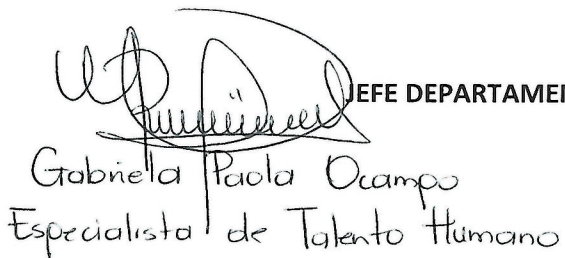 JEFE DEPARTAMEN
Gabriella Paola Ocampo
Especialista de Talento Humano